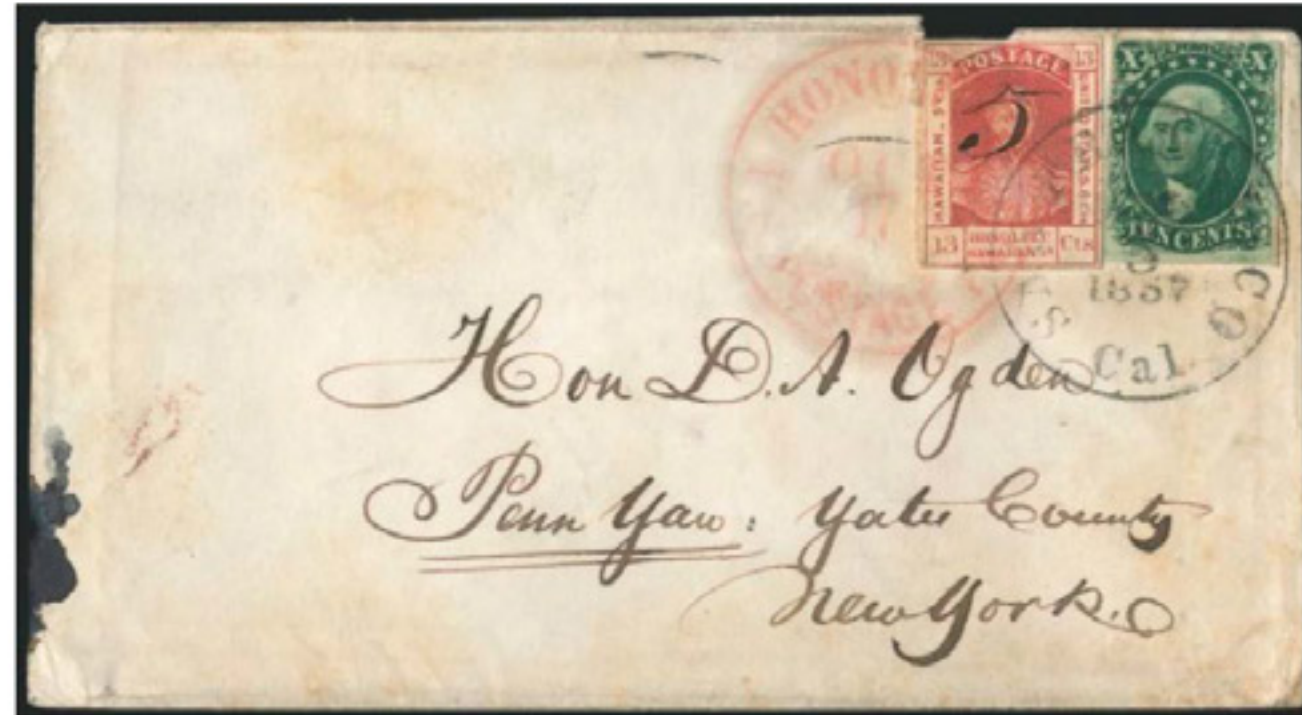 HONO
17
POSTAGE
13 13
5
HAWAIIAN
13 Cts
X X
TEN CENTS
1857
CO
Cal
Hon D. A. Ogden
Penn Yan: Yates County
New York.